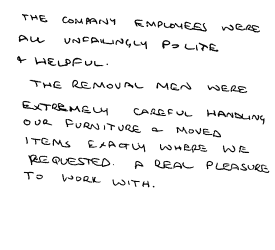 THE COMPANY EMPLOYEES WERE
ALL UNFAILINGLY POLITE
& HELPFUL.
THE REMOVAL MEN WERE
EXTREMELY CAREFUL HANDLING
OUR FURNITURE & MOVED
ITEMS EXACTLY WHERE WE
REQUESTED. A REAL PLEASURE
TO WORK WITH.